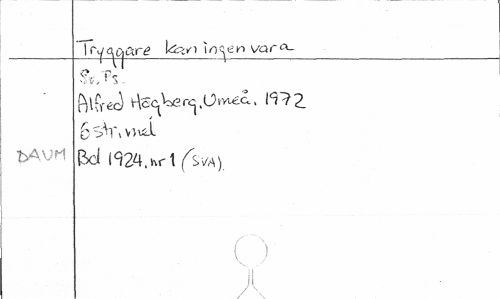 Tryggare kan ingen vara
Sv. Ps.
Alfred Högberg, Umeå, 1972
6 str, mel
DAUM Bd 1924, nr 1 (SVA).